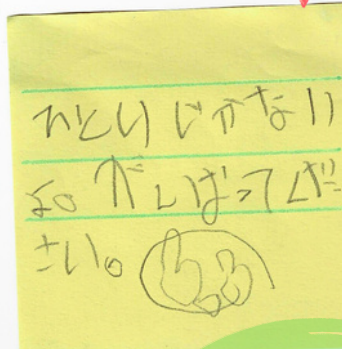 ひとりじゃない
よ。がんばってくだ
さい。